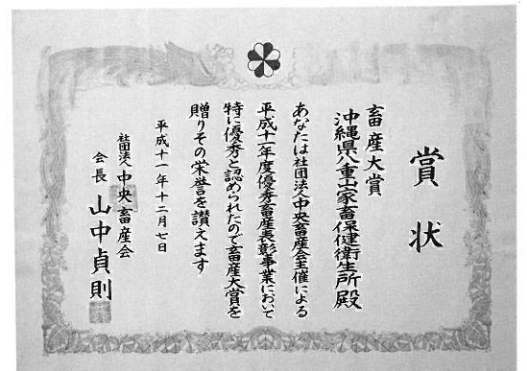 賞状
畜産大賞
沖縄県八重山家畜保健衛生所殿
あなたは社団法人中央畜産会主催による
平成十一年度優秀畜産表彰事業において
特に優秀と認められたので畜産大賞を
贈りその栄誉を讃えます
平成十一年十二月七日
社団法人中央畜産会
会長 山中貞則